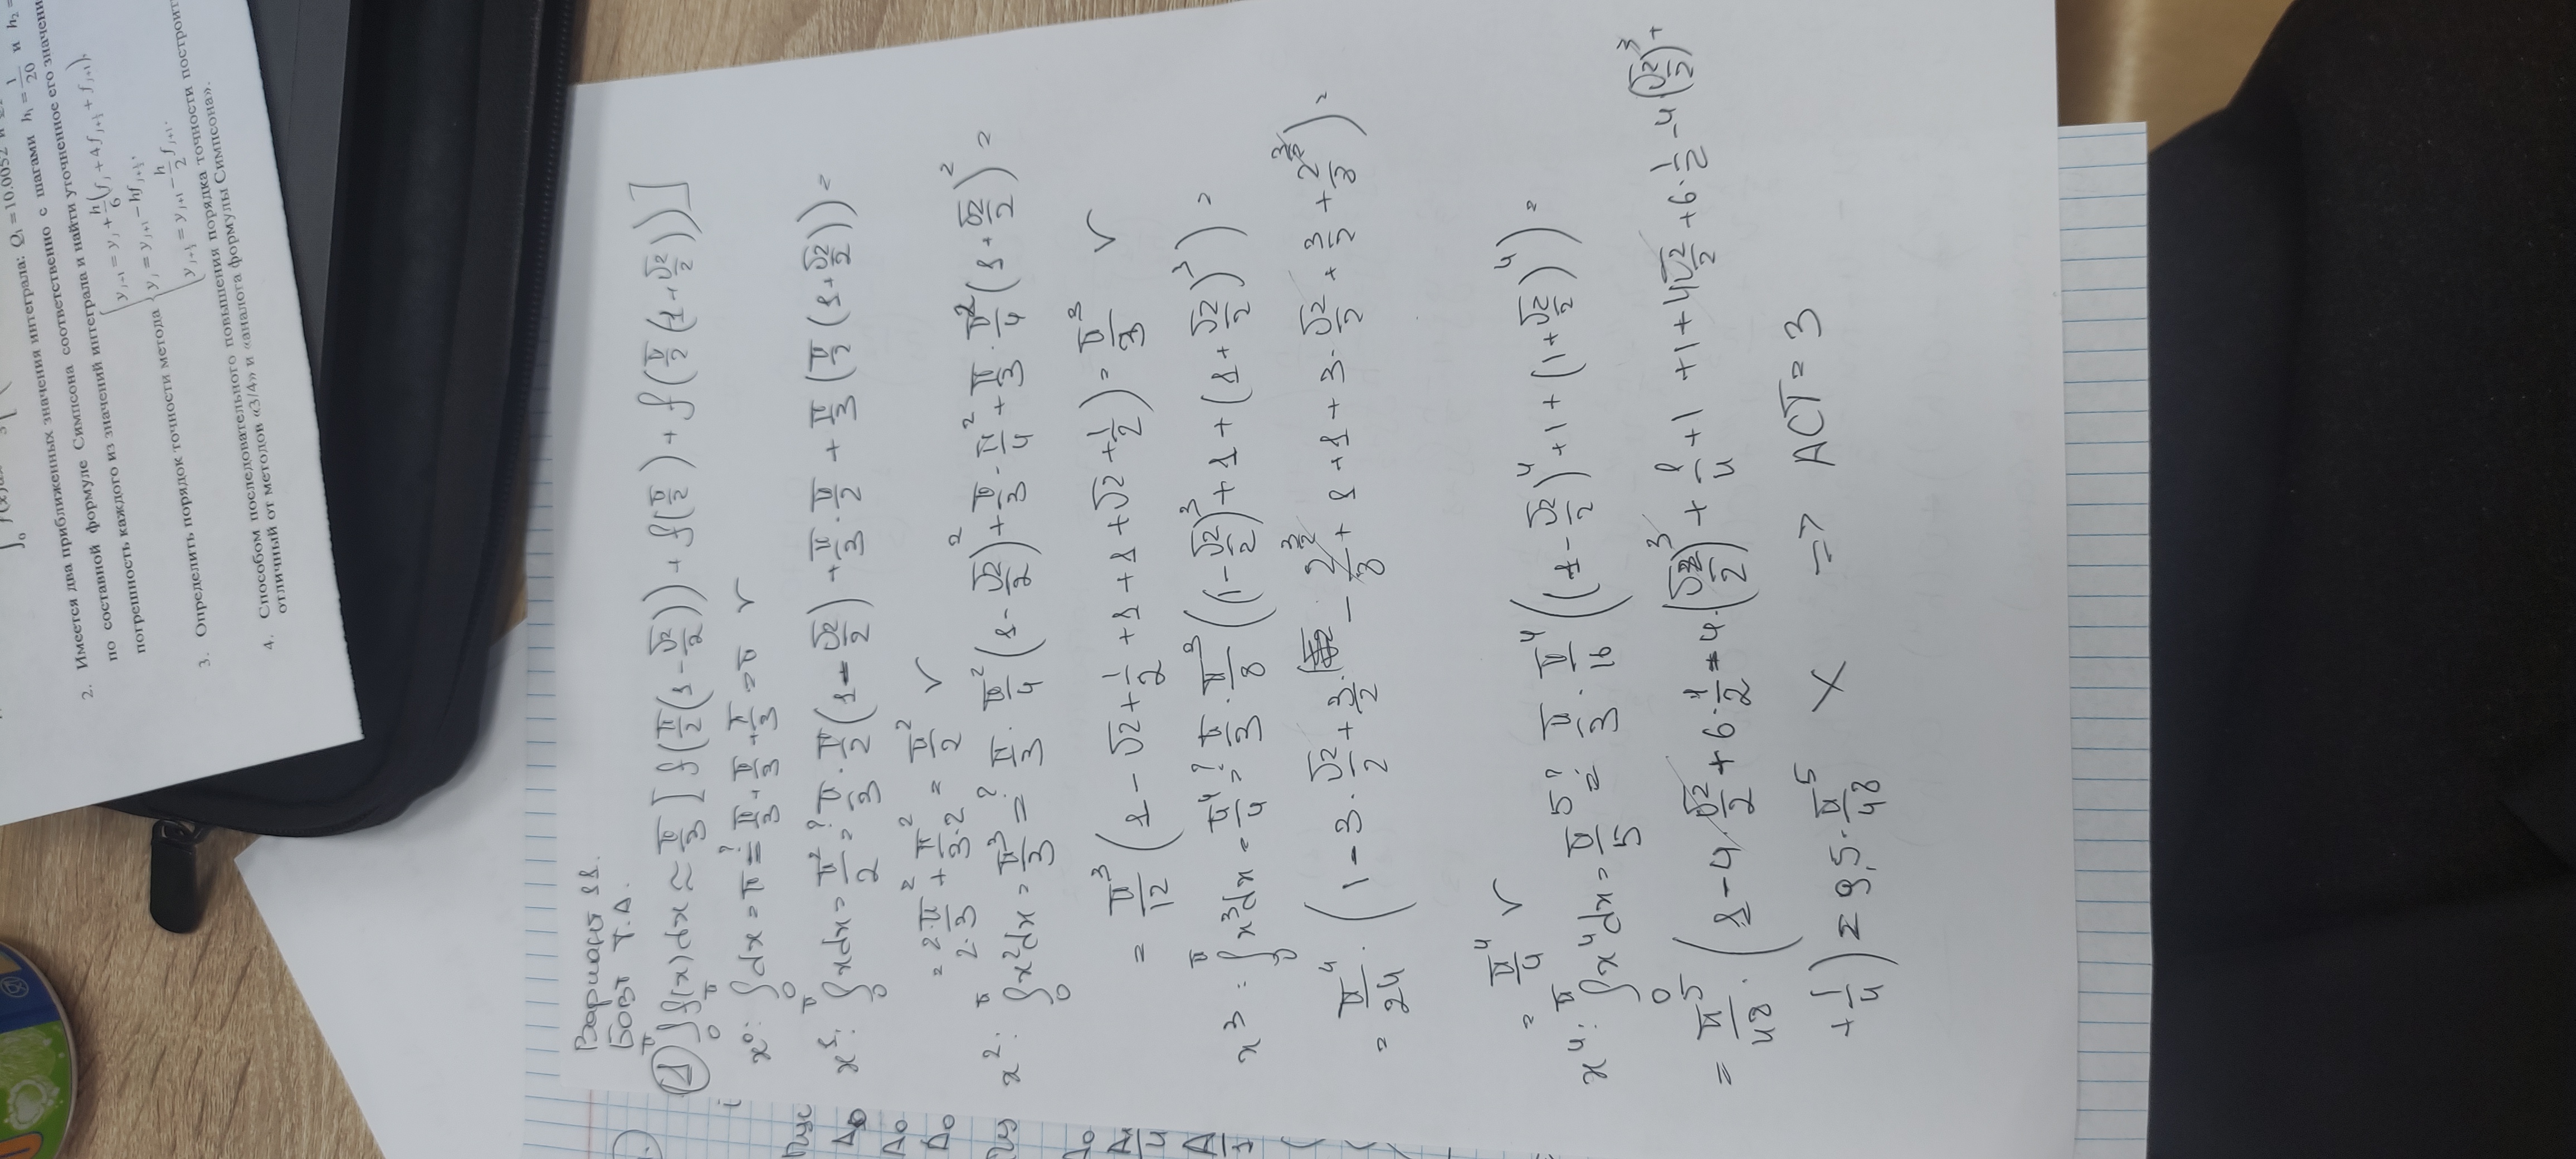 ∫₀ f(x)dx
2. Имеется два приближенных значения интеграла: Q₁ = 10.0052 и
по составной формуле Симпсона соответственно с шагами h₁ = 1/20 и h₂ =
погрешность каждого из значений интеграла и найти уточненное его значени
3. Определить порядок точности метода { y_{j+1} = y_j + h/6 (f_j + 4f_{j+½} + f_{j+1}),
y_j = y_{j+1} − hf_{j+½},
y_{j+½} = y_{j+1} − h/2 f_{j+1}.
4. Способом последовательного повышения порядка точности построит
отличный от методов «3/4» и «аналога формулы Симпсона».
Вариант 11.
Бовт Т.А.
① ∫₀^π f(x)dx ≈ π/3 [f(π/2(1 − √2/2)) + f(π/2) + f(π/2(1 + √2/2))]
x⁰: ∫₀^π dx = π =? π/3 + π/3 + π/3 = π V
x¹: ∫₀^π xdx = π²/2 =? π/3 · π/2(1 − √2/2) + π/3 · π/2 + π/3(π/2(1 + √2/2)) =
= 2·π²/2·3 + π²/3·2 = π²/2 V
x²: ∫₀^π x²dx = π³/3 =? π/3 · π²/4(1 − √2/2)² + π/3 · π²/4 + π/3 · π²/4(1 + √2/2)² =
= π³/12 (1 − √2 + 1/2 + 1 + 1 + √2 + 1/2) = π³/3 V
x³: ∫₀^π x³dx = π⁴/4 =? π/3 · π³/8 ((1 − √2/2)³ + 1 + (1 + √2/2)³) =
= π⁴/24 · (1 − 3·√2/2 + 3/2 − 2^{3/2}/8 + 1 + 1 + 3·√2/2 + 3/2 + 2^{3/2}/8) =
= π⁴/4 V
x⁴: ∫₀^π x⁴dx = π⁵/5 =? π/3 · π⁴/16 ((1 − √2/2)⁴ + 1 + (1 + √2/2)⁴) =
= π⁵/48 · (1 − 4·√2/2 + 6·1/2 − 4·(√2/2)³ + 1/4 + 1 + 1 + 4√2/2 + 6·1/2 − 4(√2/2)³ +
+ 1/4) = 9,5·π⁵/48 X => АСТ = 3